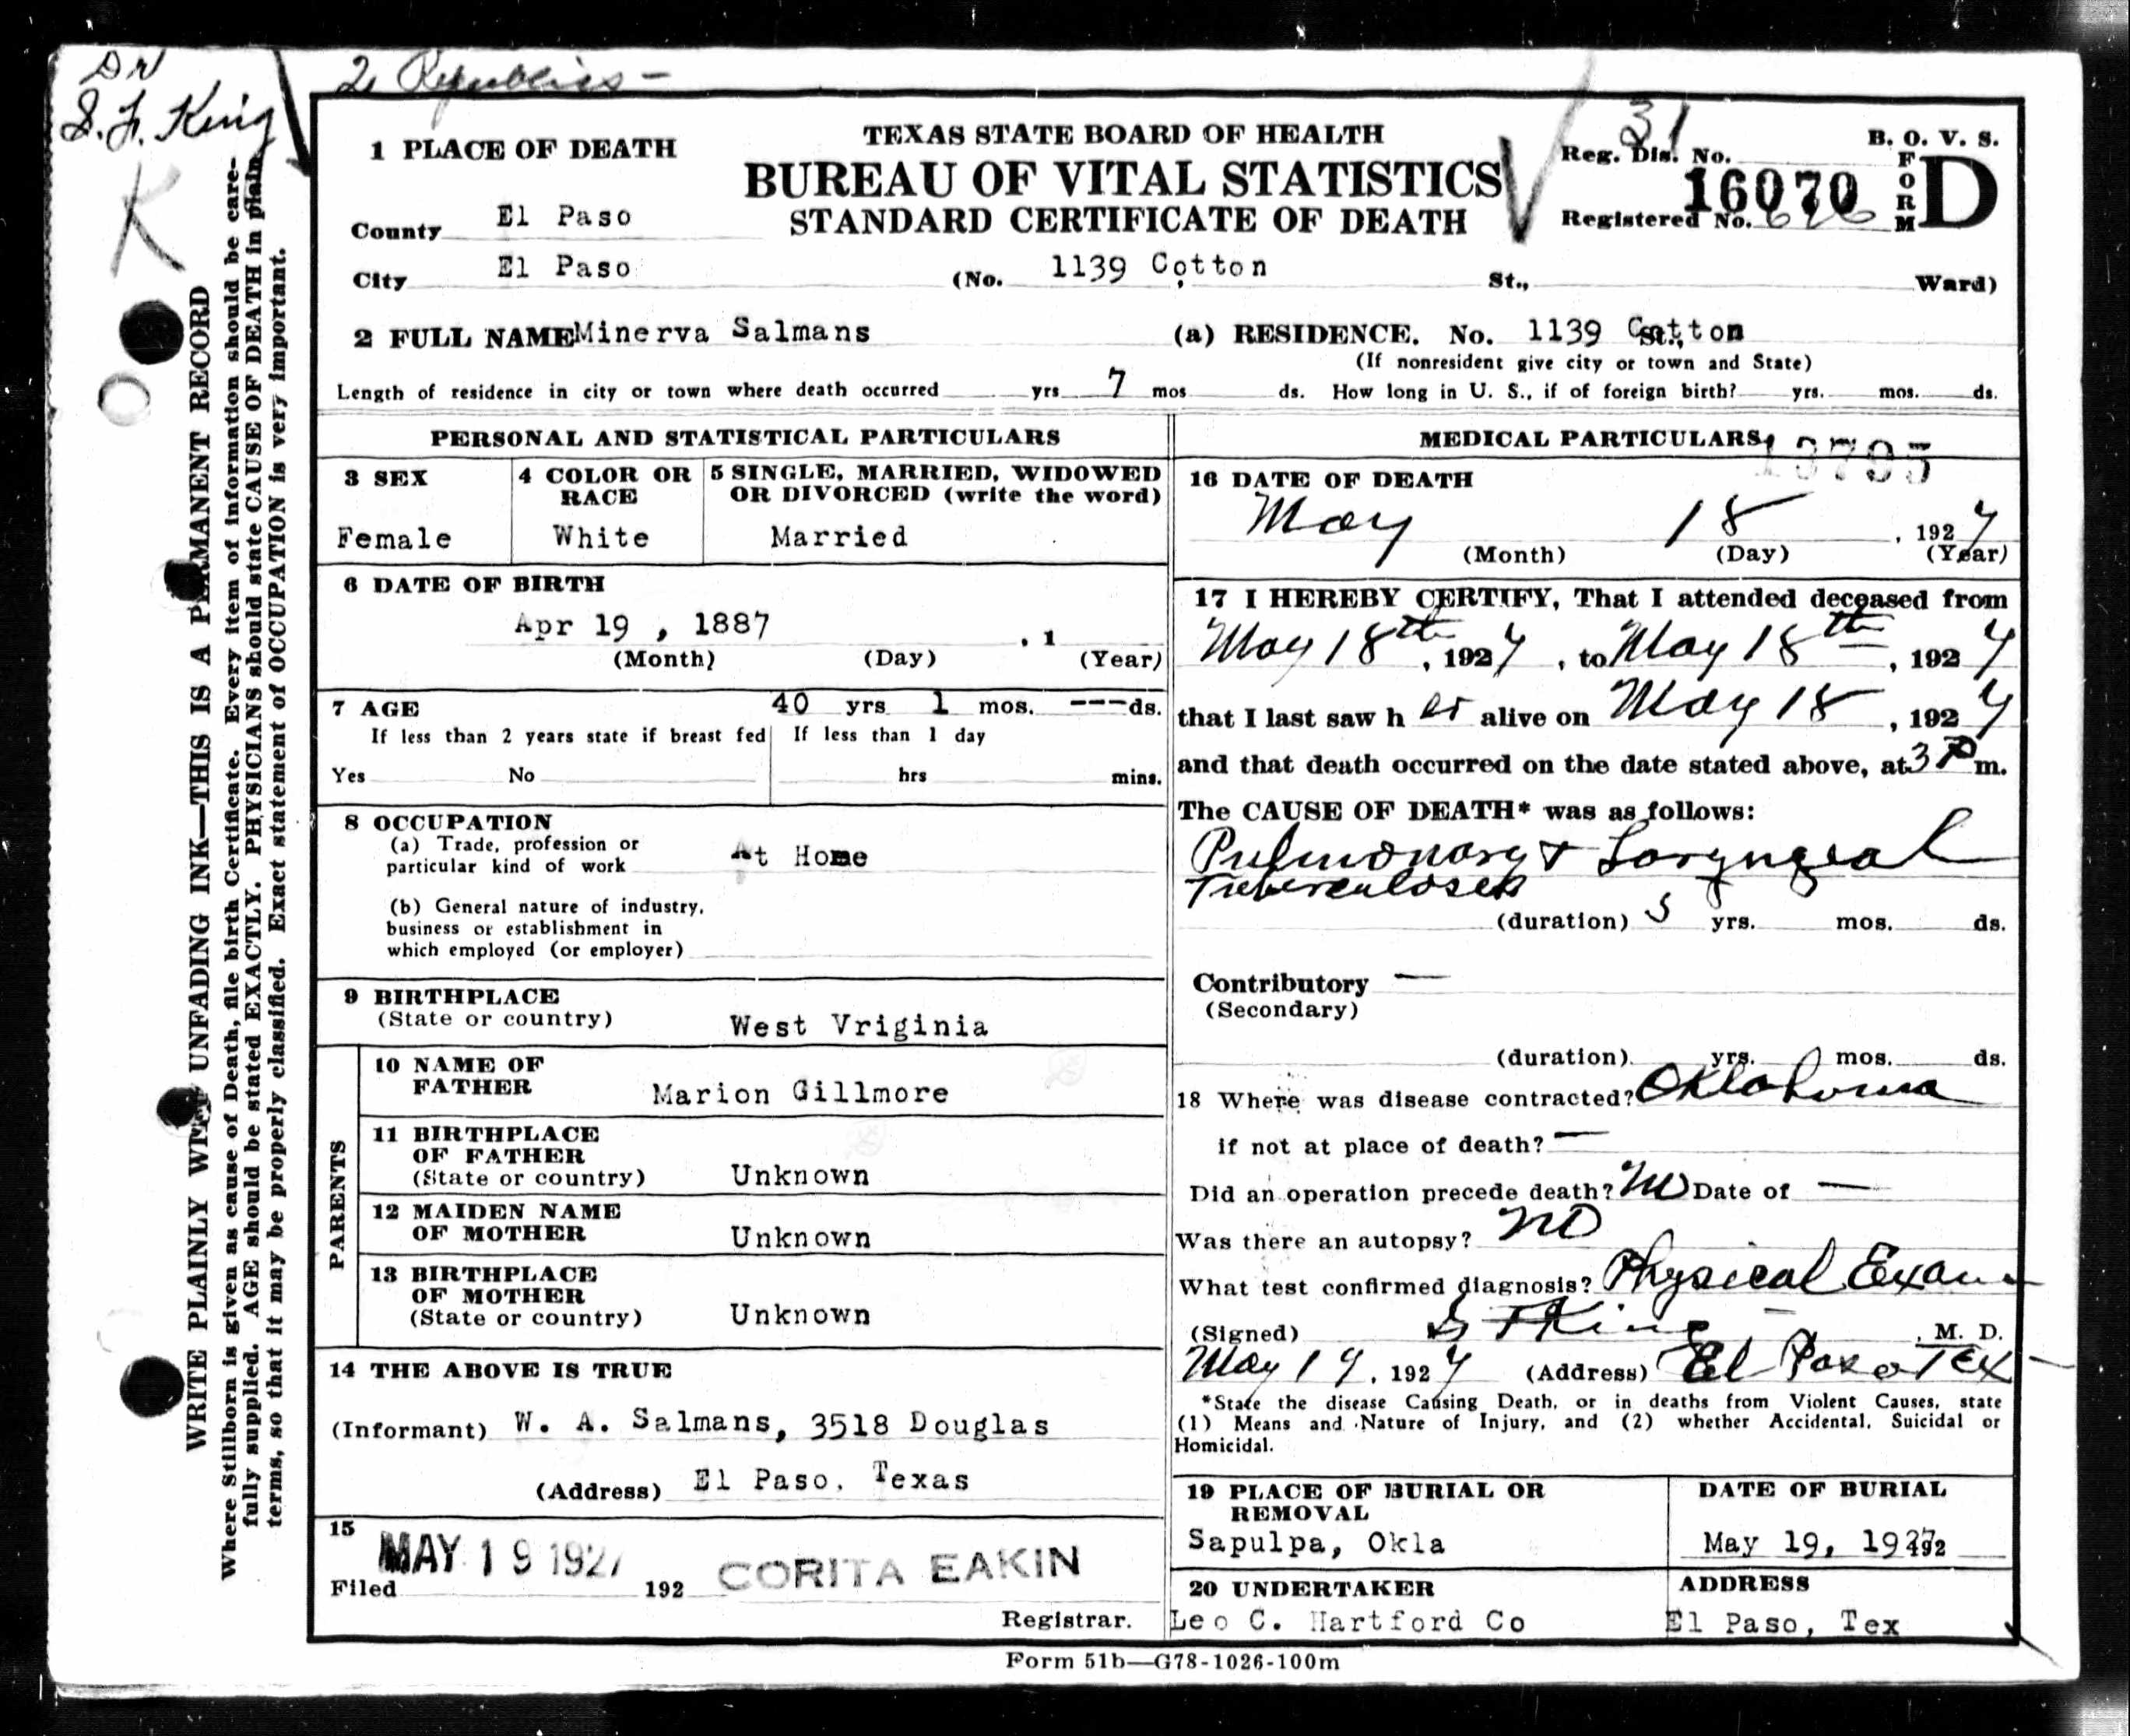 Dr
S. F. King
K
2 Republics -
WRITE PLAINLY WITH UNFADING INK—THIS IS A PERMANENT RECORD
Where Stillborn is given as cause of Death, file birth Certificate. Every item of information should be care-
fully supplied. AGE should be stated EXACTLY. PHYSICIANS should state CAUSE OF DEATH in plain
terms, so that it may be properly classified. Exact statement of OCCUPATION is very important.
1 PLACE OF DEATH
TEXAS STATE BOARD OF HEALTH
BUREAU OF VITAL STATISTICS
STANDARD CERTIFICATE OF DEATH
Reg. Dis. No. 31
B. O. V. S.
16070
FORM D
Registered No.
County El Paso
City El Paso (No. 1139 Cotton St., Ward)
2 FULL NAME Minerva Salmans (a) RESIDENCE. No. 1139 Cotton St.,
(If nonresident give city or town and State)
Length of residence in city or town where death occurred yrs 7 mos ds. How long in U. S., if of foreign birth? yrs. mos. ds.
PERSONAL AND STATISTICAL PARTICULARS
3 SEX
Female
4 COLOR OR
RACE
White
5 SINGLE, MARRIED, WIDOWED
OR DIVORCED (write the word)
Married
6 DATE OF BIRTH
Apr 19 , 1887 , 1
(Month) (Day) (Year)
7 AGE 40 yrs 1 mos. ---ds.
If less than 2 years state if breast fed If less than 1 day
Yes No hrs mins.
8 OCCUPATION
(a) Trade, profession or
particular kind of work At Home
(b) General nature of industry,
business or establishment in
which employed (or employer)
9 BIRTHPLACE
(State or country) West Vriginia
PARENTS
10 NAME OF
FATHER Marion Gillmore
11 BIRTHPLACE
OF FATHER
(State or country) Unknown
12 MAIDEN NAME
OF MOTHER Unknown
13 BIRTHPLACE
OF MOTHER
(State or country) Unknown
14 THE ABOVE IS TRUE
(Informant) W. A. Salmans, 3518 Douglas
(Address) El Paso, Texas
15
Filed MAY 19 1927 192 CORITA EAKIN
Registrar.
MEDICAL PARTICULARS
13795
16 DATE OF DEATH
May 18 , 1927
(Month) (Day) (Year)
17 I HEREBY CERTIFY, That I attended deceased from
May 18th , 1927 , to May 18th , 1927
that I last saw h er alive on May 18 , 1927
and that death occurred on the date stated above, at 3 P m.
The CAUSE OF DEATH* was as follows:
Pulmonary & Laryngeal
Tuberculosis
(duration) yrs. mos. ds.
Contributory —
(Secondary)
(duration) yrs. mos. ds.
18 Where was disease contracted? Oklahoma
if not at place of death? —
Did an operation precede death? No Date of —
Was there an autopsy? No
What test confirmed diagnosis? Physical Exam
(Signed) S F King , M. D.
May 19, 1927 (Address) El Paso Tex
*State the disease Causing Death, or in deaths from Violent Causes, state
(1) Means and Nature of Injury, and (2) whether Accidental, Suicidal or
Homicidal.
19 PLACE OF BURIAL OR
REMOVAL
Sapulpa, Okla
DATE OF BURIAL
May 19, 1927
20 UNDERTAKER
Leo C. Hartford Co
ADDRESS
El Paso, Tex
Form 51b—G78-1026-100m